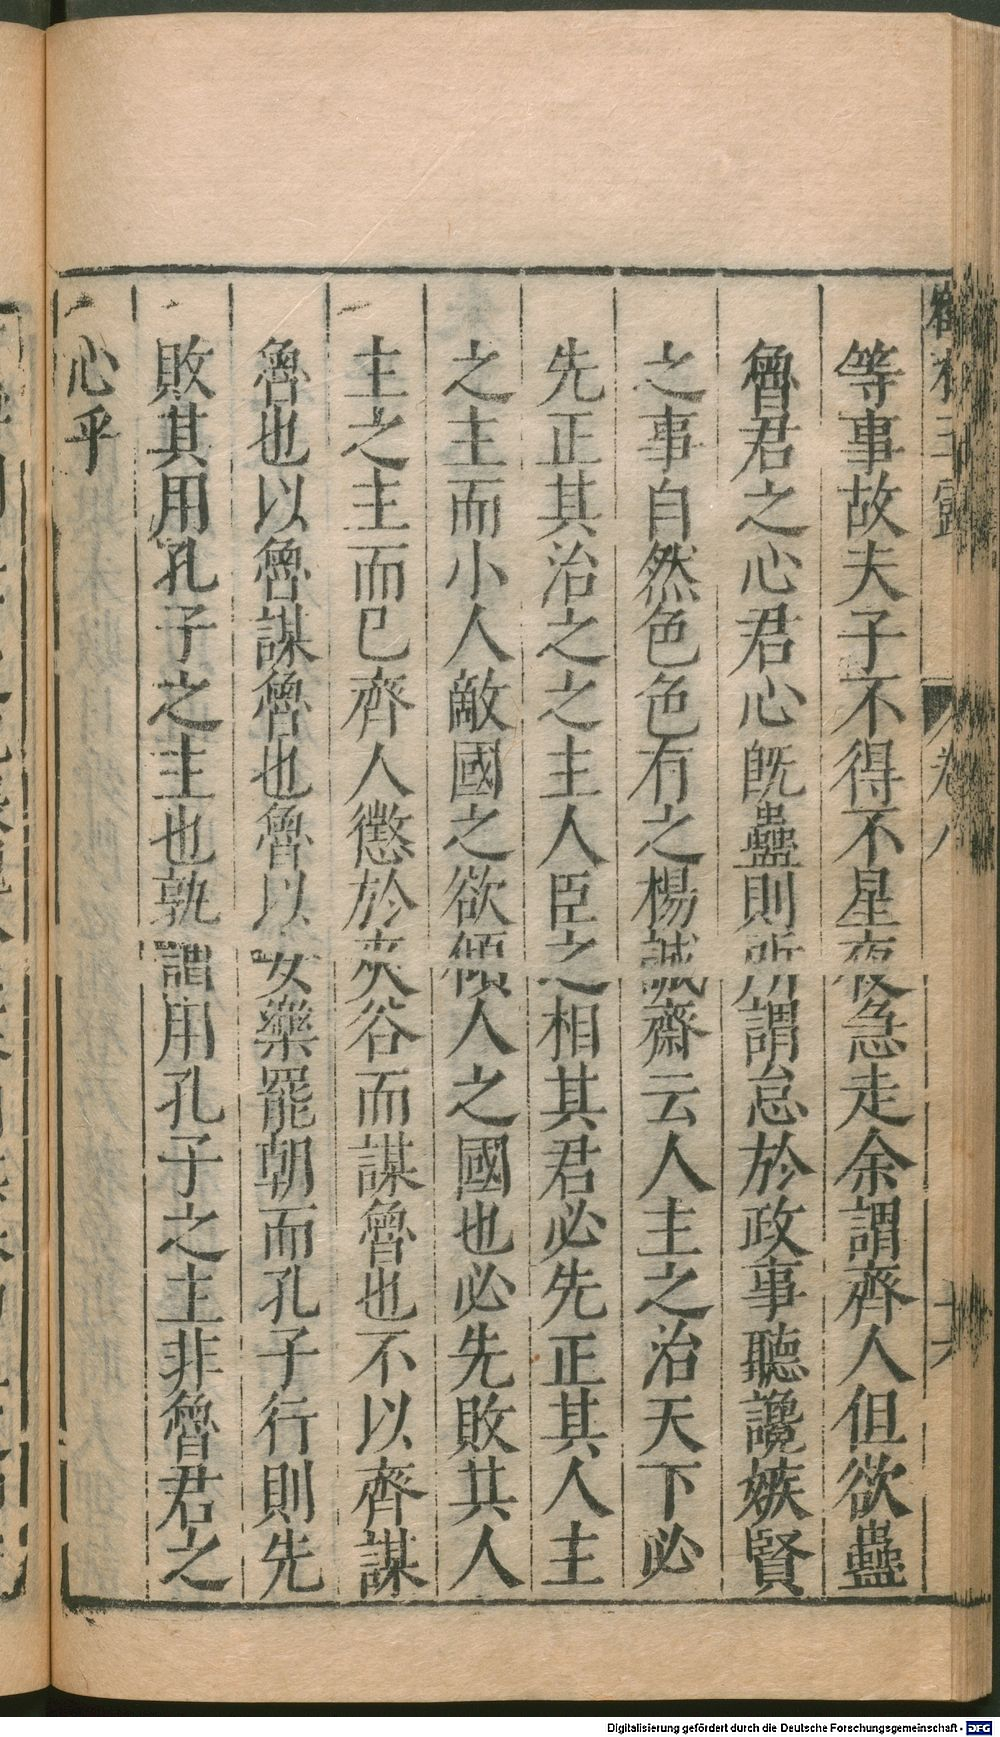 鶴林玉露 卷八 十六
等事故夫子不得不星夜急走余謂齊人但欲蠱
魯君之心君心旣蠱則所謂怠於政事聽讒嫉賢
之事自然色色有之楊誠齋云人主之治天下必
先正其治之之主人臣之相其君必先正其人主
之主而小人敵國之欲傾人之國也必先敗其人
主之主而已齊人懲於夾谷而謀魯也不以齊謀
魯也以魯謀魯也魯以女樂罷朝而孔子行則先
敗其用孔子之主也孰謂用孔子之主非魯君之
心乎
Digitalisierung gefördert durch die Deutsche Forschungsgemeinschaft - DFG